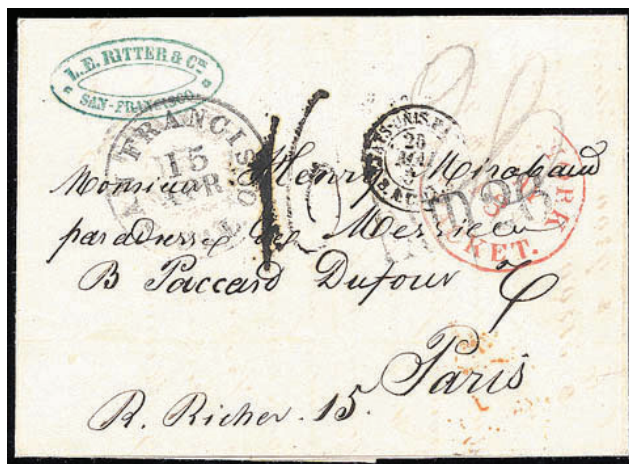 L. E. RITTER & Cie
SAN-FRANCISCO
SAN FRANCISCO
15
APR
ETATS-UNIS
26
MAI
YORK
PACKET.
Monsieur Henry Mirabaud
par adresse de Messieu
B Paccard Dufour &
Paris
R. Richer. 15.